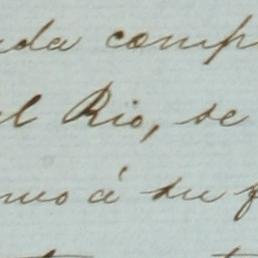 da comp
el Rio, se
mo á su f